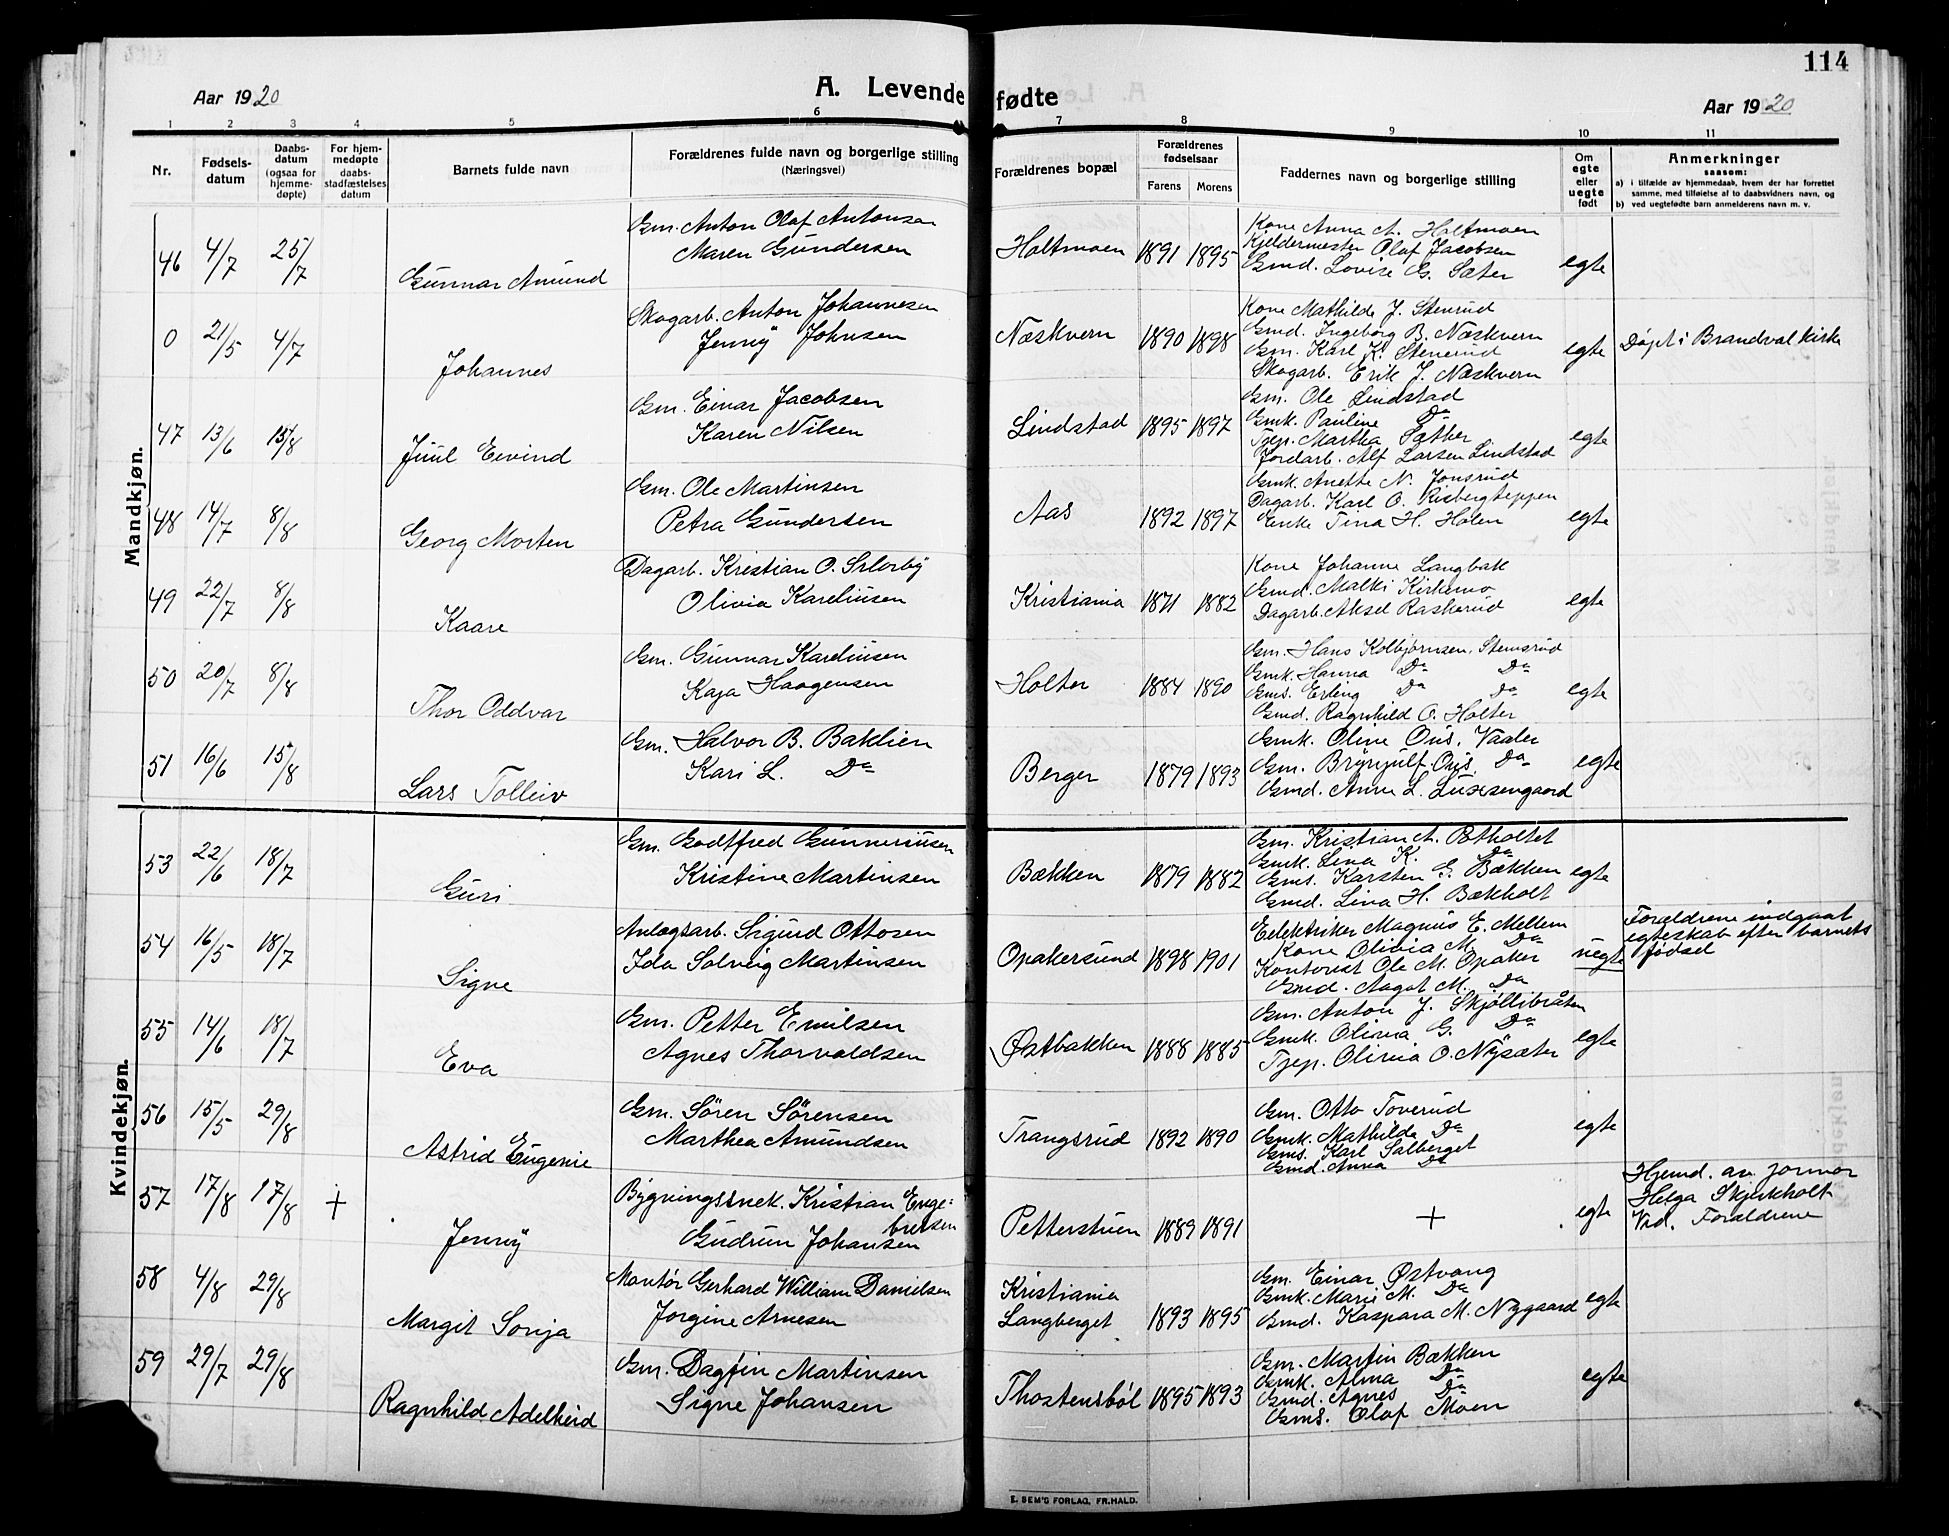 114
A. Levendefødte
Aar 1920
Aar 1920
1 2 3 4 5 6 7 8 9 10 11
Nr.
Fødsels-
datum
Daabs-
datum
(ogsaa for
hjemme-
døpte)
For hjem-
medøpte
daabs-
stadfæstelses
datum
Barnets fulde navn
Forældrenes fulde navn og borgerlige stilling
(Næringsvei)
Forældrenes bopæl
Forældrenes
fødselsaar
Farens Morens
Faddernes navn og borgerlige stilling
Om
egte
eller
uegte
født
Anmerkninger
saasom:
a) i tilfælde av hjemmedaab, hvem der har forrettet
samme, med tilføielse af to daabsvidners navn, og
b) ved uegtefødte barn anmelderens navn m. v.
Mandkjøn.
46 4/7 25/7 Gunnar Amund
Gm. Anton Olaf Antonsen
Maren Gundersen
Holtmoen 1891 1895
Kone Anna A. Holtmoen
Kjeldermester Olaf Jacobsen
Gmd. Lovise G. Sæter
egte
0 21/5 4/7 Johannes
Skogarb. Anton Johannesen
Jenny Johnsen
Næskvern 1890 1898
Kone Mathilde J. Stenrud
Gmd. Ingeborg B. Næskvern
Gm. Karl K. Stenerud
Skogarb. Erik J. Næskvern
egte
Døpt i Brandval kirke
47 13/6 15/8 Juul Eivind
Gm. Einar Jacobsen
Karen Nilsen
Lindstad 1895 1897
Gm. Ole Lindstad
Gmk. Pauline Do
Tjep. Martha Sæther
Jordarb. Alf Larsen Lindstad
egte
48 14/7 8/8 Georg Morten
Gm. Ole Martinsen
Petra Gundersen
Aas 1892 1897
Gmk. Anette N. Jonsrud
Dagarb. Karl O. Risbergteppen
Enke Tina H. Holen
egte
49 22/7 8/8 Kaare
Dagarb. Kristian O.
Olivia Kareliusen
Kristiania 1871 1882
Kone Johanne Langbak
Gmd. Malki Kirkemo
Dagarb. Aksel Raskerud
egte
50 20/7 8/8 Thor Oddvar
Gm. Gunnar Kareliusen
Kaja Haagensen
Holter 1884 1890
Gm. Hans Kolbjørnsen Stensrud
Gmk. Hanna Do Do
Gms. Erling Do Do
Gmd. Ragnhild O. Holter
egte
51 16/6 15/8 Lars Tolleiv
Gm. Halvor B. Baklien
Kari L. Do
Berger 1879 1893
Gmk. Oline Ous, Vaaler
Gm. Brynjulf Ous, Do
Gmd. Anne L.
egte
Kvindekjøn.
53 22/6 18/7 Guri
Gm. Godtfred Gunneriusen
Kristine Martinsen
Bækken 1879 1882
Gm. Kristian A. Botholtet
Gmk. Lina K. Do
Gms. Karsten G. Bækken
Gmd. Lina H. Bækholt
egte
54 16/5 18/7 Signe
Anlægsarb. Sigurd Ottosen
Ida Solveig Martinsen
Opakersund 1898 1901
Eelektriker Magnus E. Mellem
Kone Olivia M. Do
Kontorist Ole M. Opaker
Gmd. Aagot M. Do
uegte
Forældrene indgaat
egteskab efter barnets
fødsel
55 14/6 18/7 Eva
Gm. Petter Emilsen
Agnes Thorvaldsen
Østbakken 1888 1885
Gm. Anton J. Skjøllibråten
Gmk. Olivia G. Do
Tjep. Olivia O. Nysæter
egte
56 15/5 29/8 Astrid Eugenie
Gm. Sören Sörensen
Marthea Amundsen
Trangsrud 1892 1890
Gm. Otto Toverud
Gmk. Mathilde Do
Gms. Karl Solberget
Gmd. Anna Do
egte
57 17/8 17/8 + Jenny
Bygningssnek. Kristian Enge-
bretsen
Gudrun Johansen
Petterstuen 1889 1891
+
egte
Hjemd. av jormor
Helga Skjerkholt
Vid. Forældrene
58 4/8 29/8 Margit Sonja
Montør Gerhard William Danielsen
Jorgine Arnesen
Kristiania
Langberget 1893 1895
Gm. Einar Østvang
Gmk. Marie M. Do
Gmd. Kaspara M. Nygaard
egte
59 29/7 29/8 Ragnhild Adelheid
Gm. Dagfin Martinsen
Signe Johansen
Thostensböl 1895 1893
Gm. Martin Bækken
Gmk. Alma Do
Gmd. Agnes Do
Gms. Olaf Moen
egte
E. SEM'S FORLAG, FR.HALD.